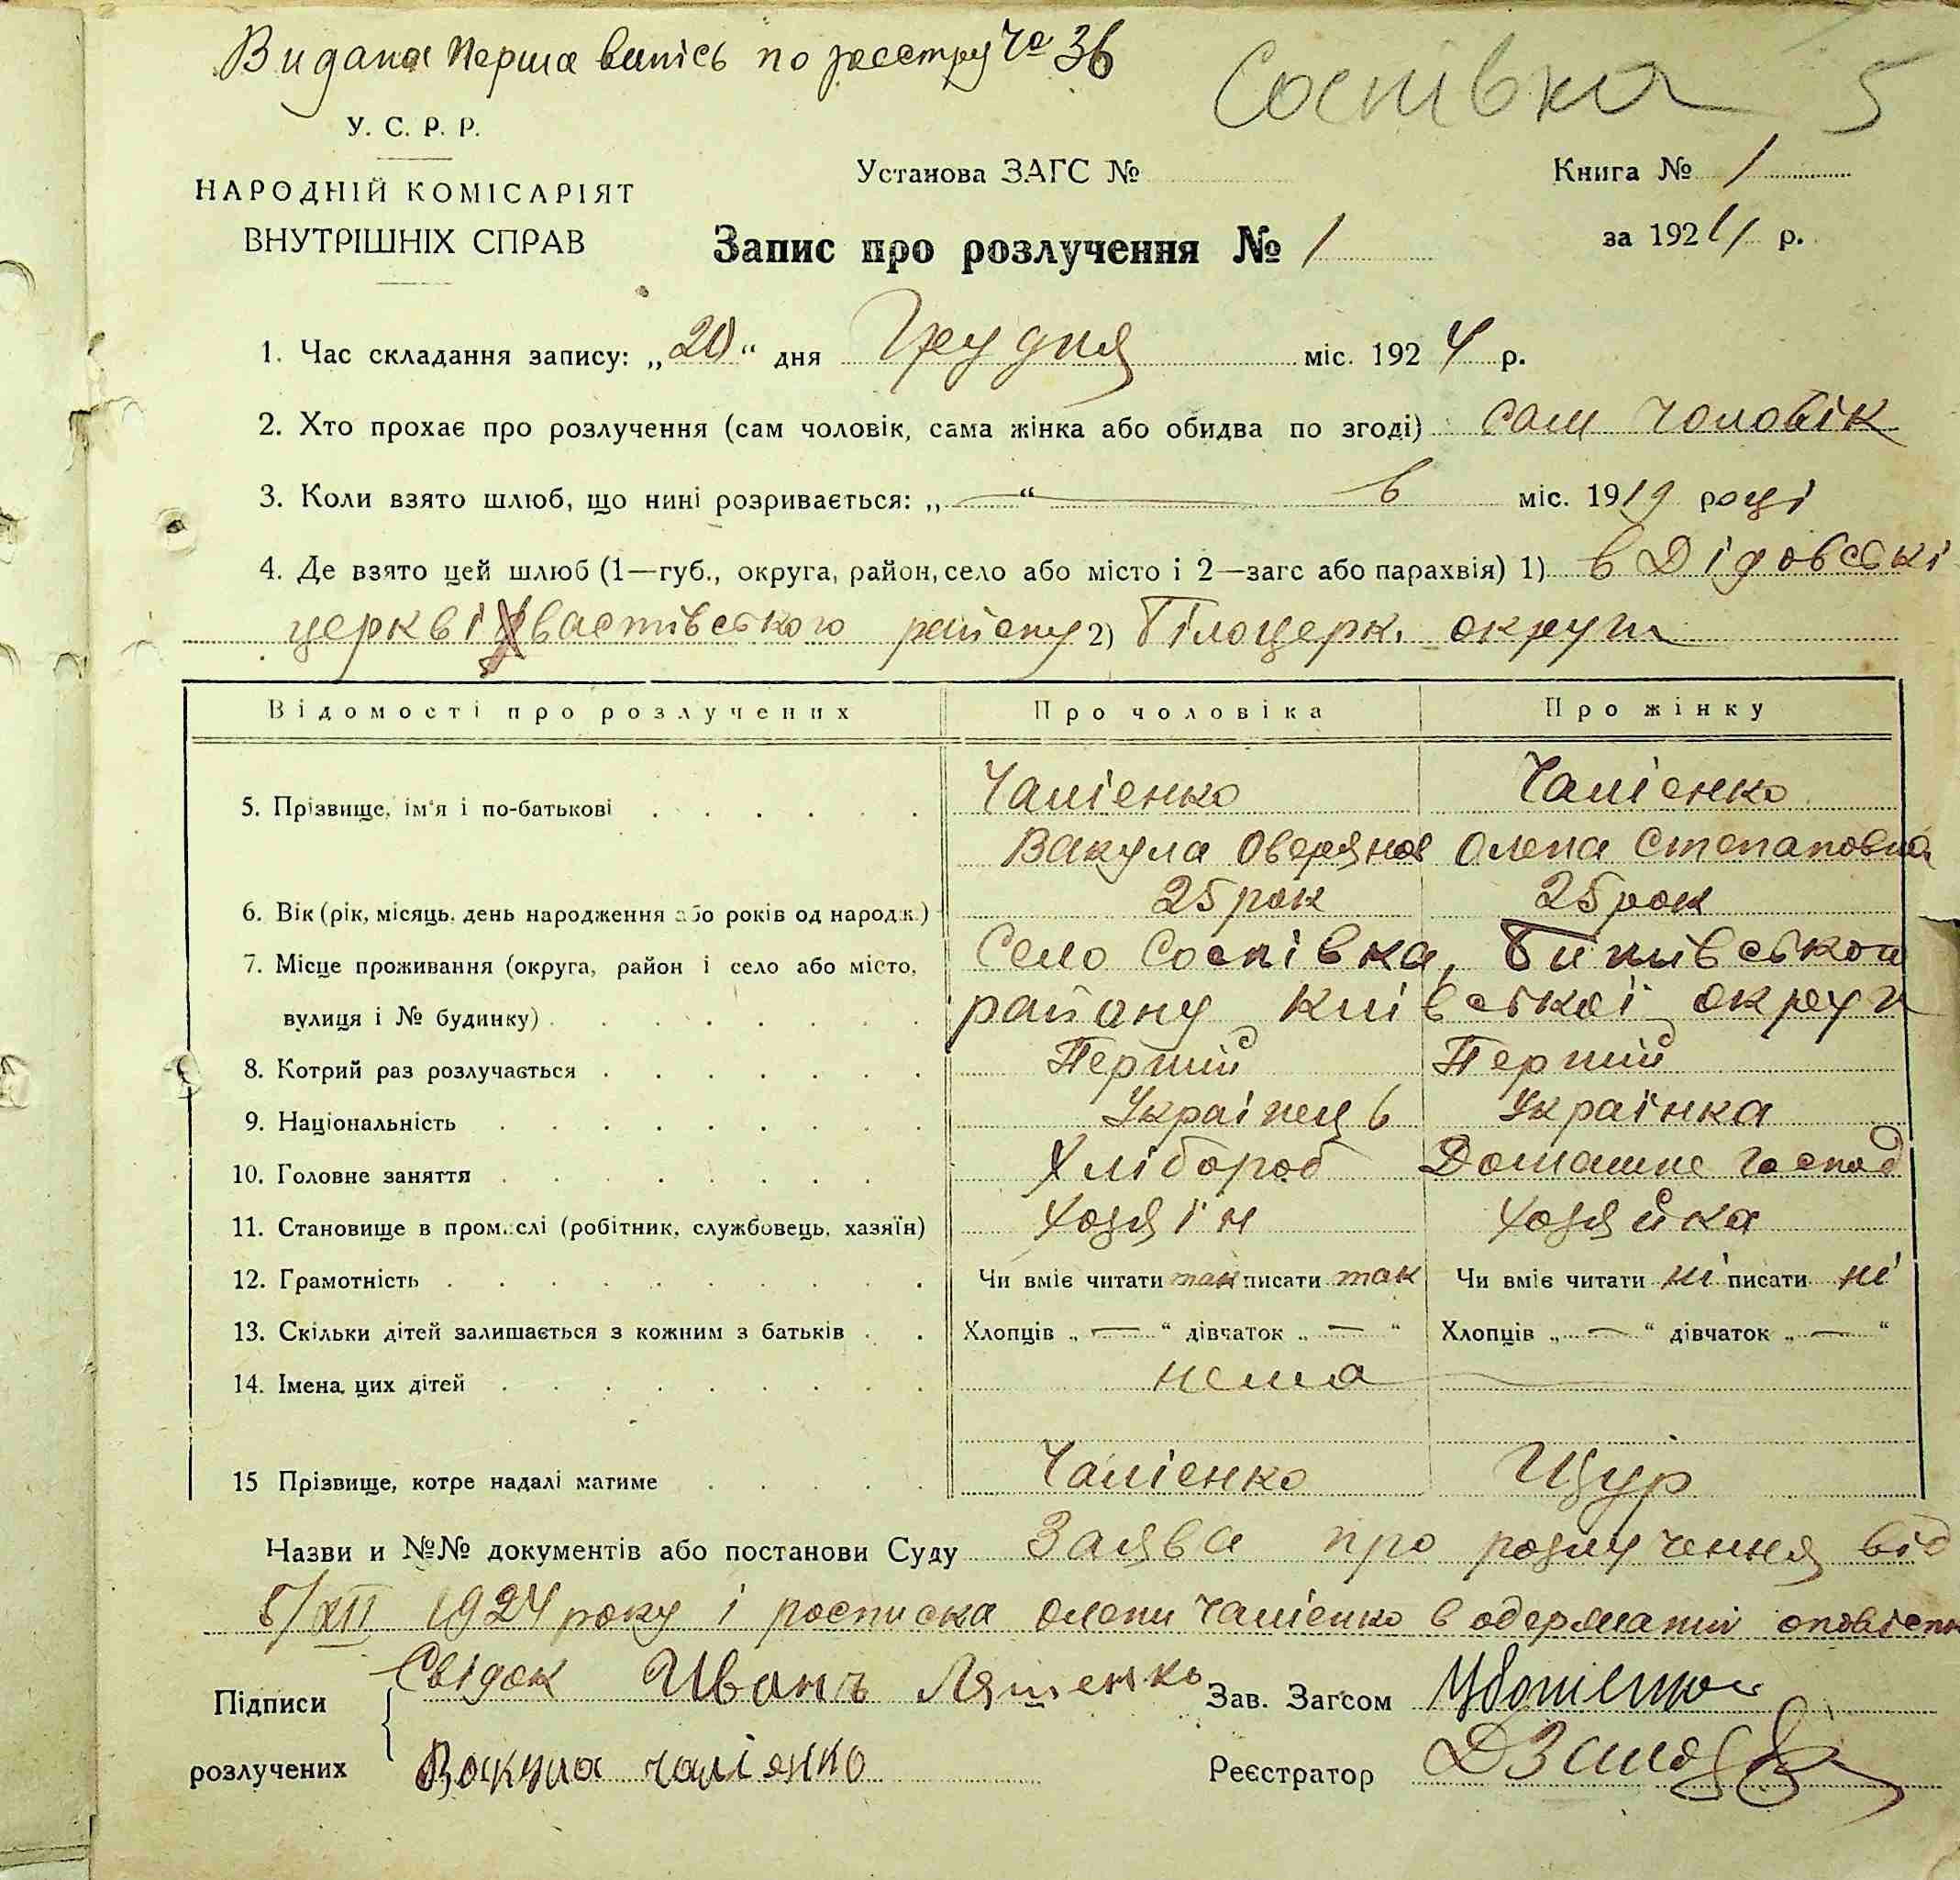 Видана перша випісь по реєстру № 36
Соснівка 5
У. С. Р. Р.
НАРОДНІЙ КОМІСАРІЯТ
ВНУТРІШНІХ СПРАВ
Установа ЗАГС №
Книга № 1
за 1924 р.
Запис про розлучення № 1
1. Час складання запису: „20“ дня Грудня міс. 1924 р.
2. Хто прохає про розлучення (сам чоловік, сама жінка або обидва по згоді) сам чоловік
3. Коли взято шлюб, що нині розривається: „—“ — в міс. 1919 році
4. Де взято цей шлюб (1—губ., округа, район, село або місто і 2—загс або парахвія) 1) в Дідовські
церкві Хвастівського району 2) Білоцерк. округи
Відомості про розлучених Про чоловіка Про жінку
5. Прізвище, ім'я і по-батькові Чалієнко Чалієнко
Вакула Оверянов Олена Степановна
6. Вік (рік, місяць, день народження або років од народж.) 25 рок 25 рок
7. Місце проживання (округа, район і село або місто, Село Соснівка,
вулиця і № будинку) району Київської округи
8. Котрий раз розлучається Перший Перший
9. Національність Українець Українка
10. Головне заняття Хлібороб Домашнє господ
11. Становище в промислі (робітник, службовець, хазяїн) Хозяїн Хозяйка
12. Грамотність Чи вміє читати так писати так Чи вміє читати ні писати ні
13. Скільки дітей залишається з кожним з батьків Хлопців „—“ дівчаток „—“ Хлопців „—“ дівчаток „—“
14. Імена цих дітей нема
15 Прізвище, котре надалі матиме Чалієнко Щур
Назви и №№ документів або постанови Суду Заява про розлучення від
8/XII 1924 року і росписка Олени Чалієнко в одержанні
Підписи Свідок Иванъ Ляшенко Зав. Загсом
розлучених Вакула чалієнко Реєстратор